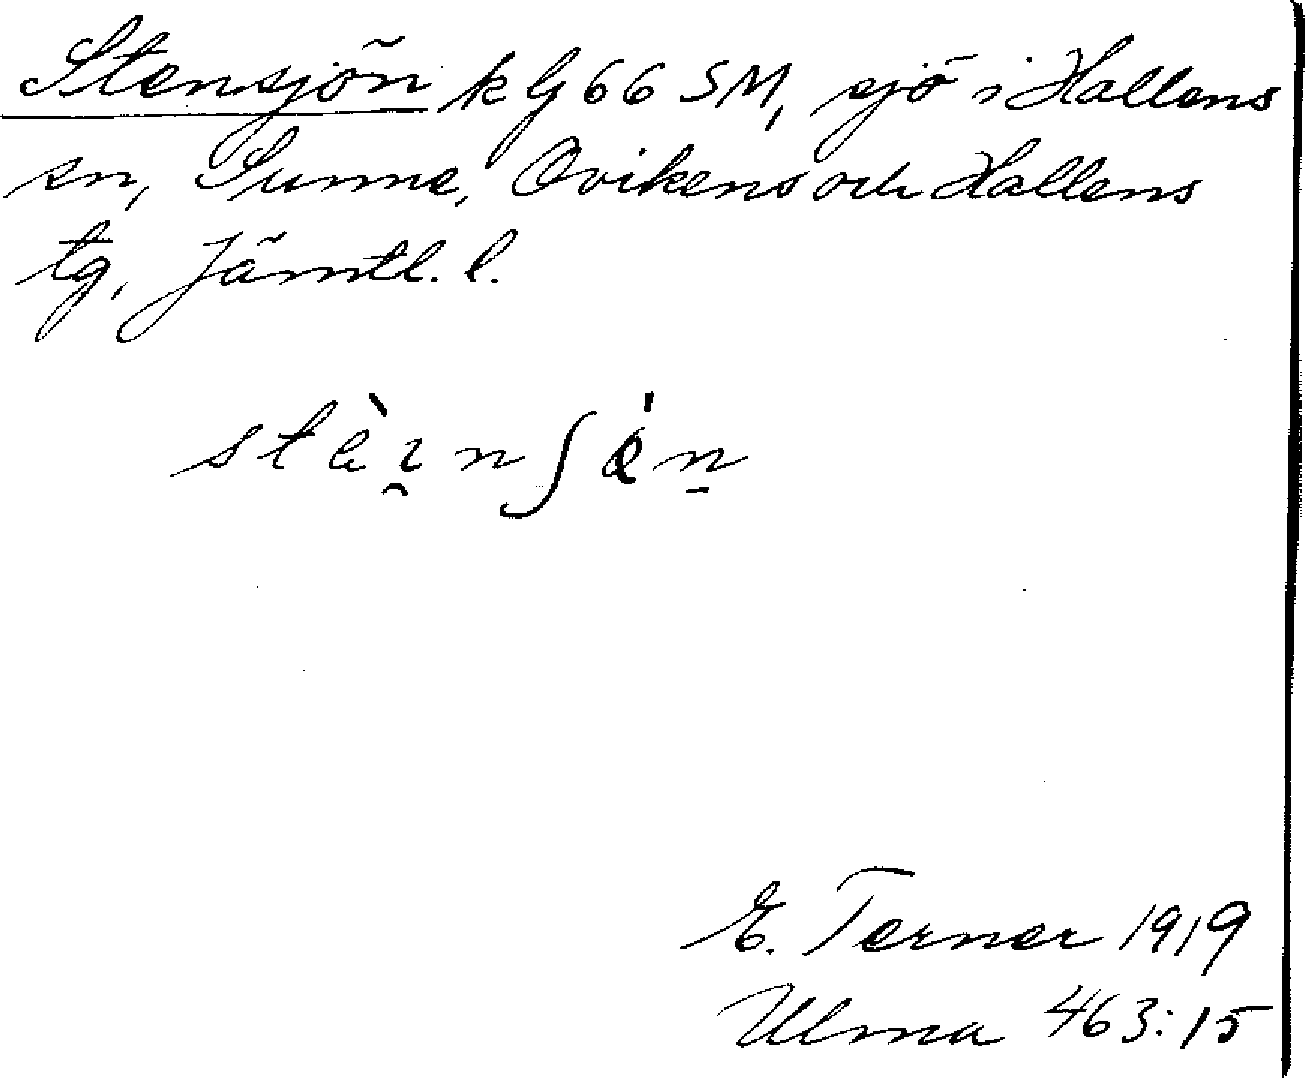 Stensjön k G 66 SM, sjö i Hallens
sn, Sunne, Ovikens och Hallens
tg, Jämtl. l.
E. Terner 1919
Ulma 463:15